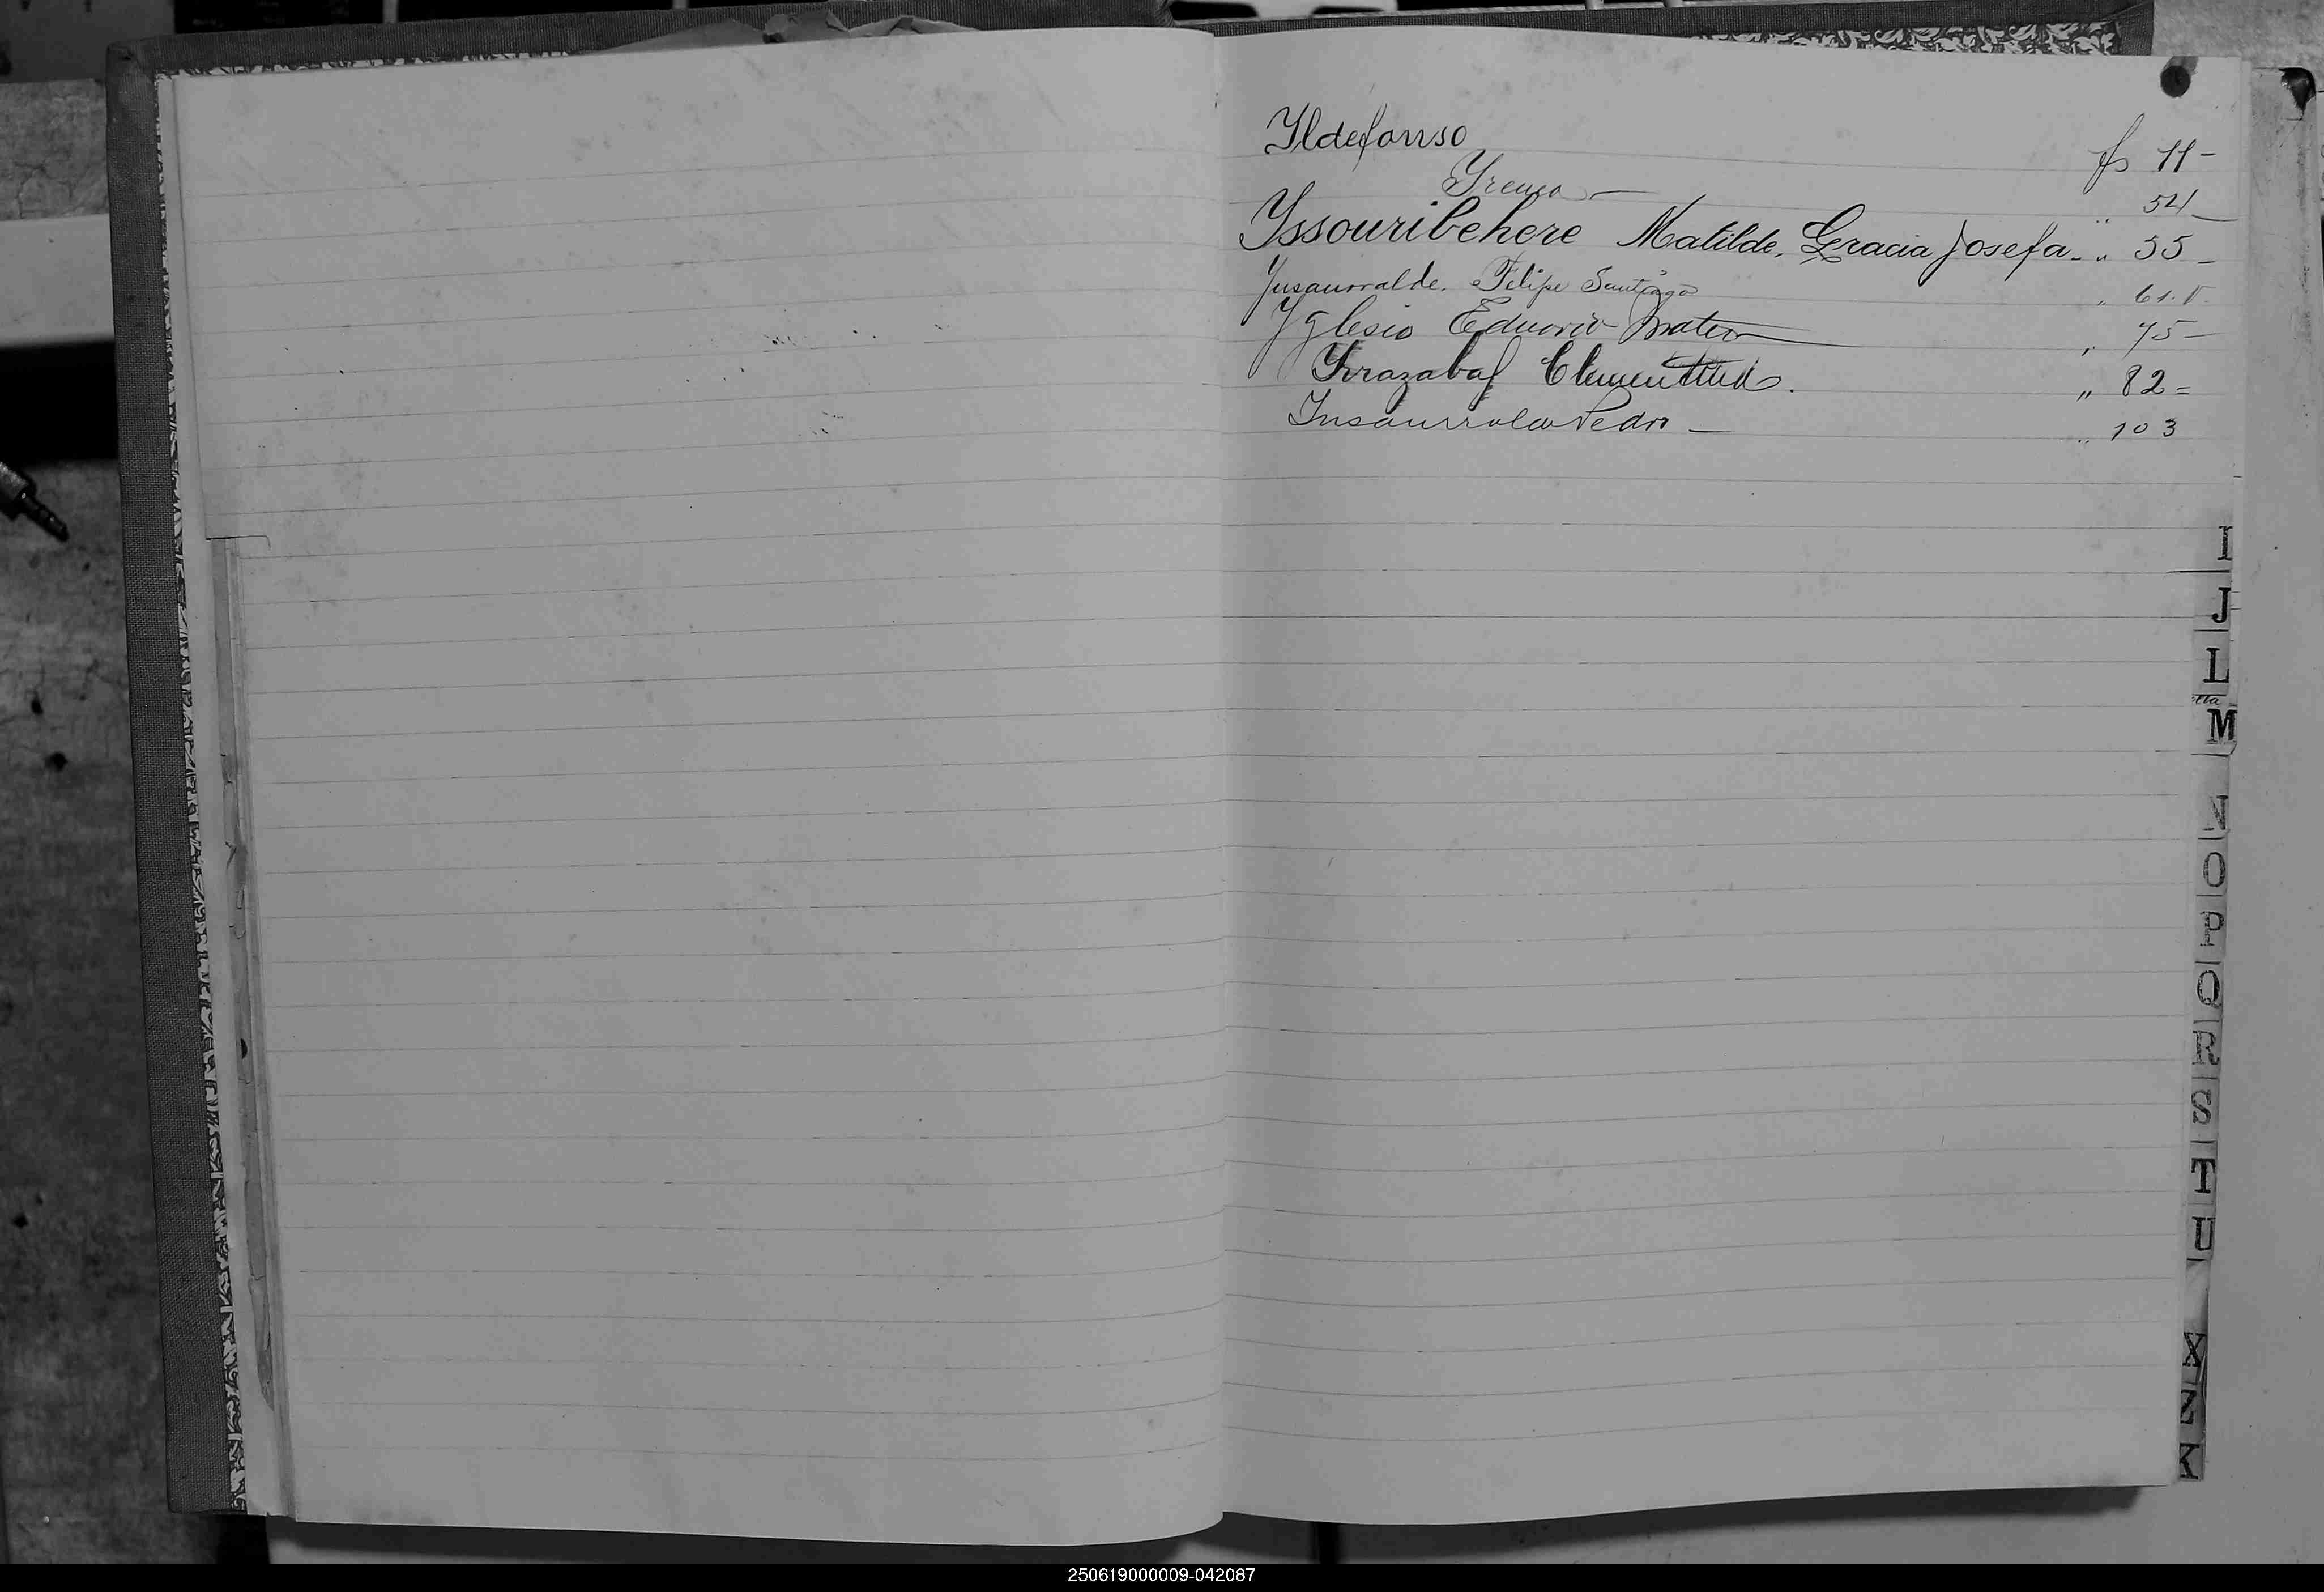 Yldefonso fs 11-
Yrenea — " 54 -
Yssouribehere Matilde, Gracia Josefa - " 55 -
Ynsaurralde. Felipe Santiago " 61. V.
Yglesia Eduardo Mateo " 75 -
Yrrazabal " 82 =
Insaurralde Pedro — " 103
I
J
L
M
N
O
P
Q
R
S
T
U
X
Z
K
250619000009-042087